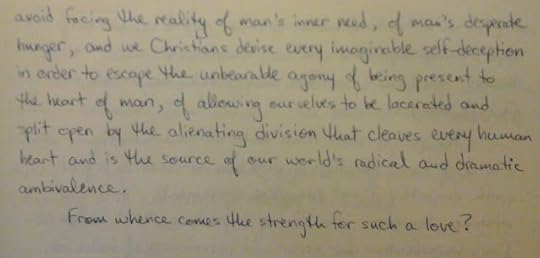 avoid facing the reality of man's inner need, of man's desperate
hunger, and we Christians devise every imaginable self-deception
in order to escape the unbearable agony of being present to
the heart of man, of allowing ourselves to be lacerated and
split open by the alienating division that cleaves every human
heart and is the source of our world's radical and dramatic
ambivalence.
From whence comes the strength for such a love?